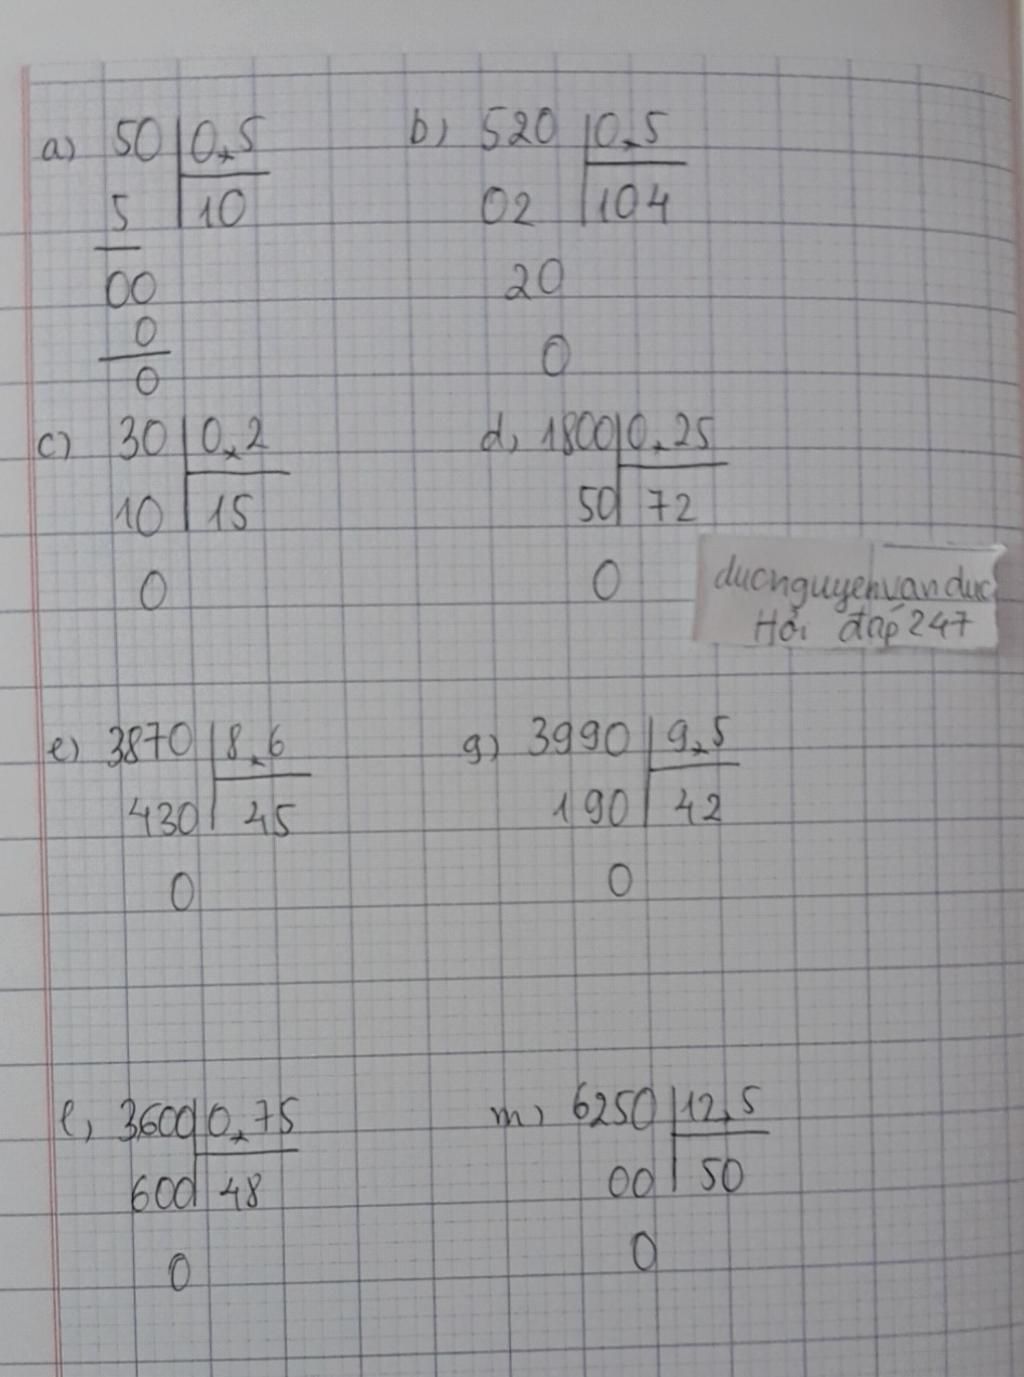 a) 50 0,5
5 10
00
0
0
b) 520 0,5
02 104
20
0
c) 30 0,2
10 15
0
d, 1800 0,25
50 72
0
ducnguyenvanduc
Hỏi đáp 247
e) 3870 8,6
430 45
0
g) 3990 9,5
190 42
0
l, 3600 0,75
600 48
0
m, 6250 12,5
00 50
0